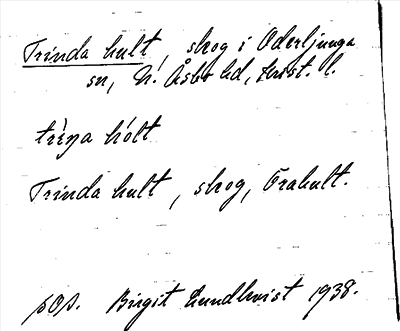 Trinda hult, skog i Oderljunga
sn, N. Åsbo hd, Krist. l.
trèna hólt
Trinda hult, skog, Örahult.
pOp. Birgit Lundkvist 1938.